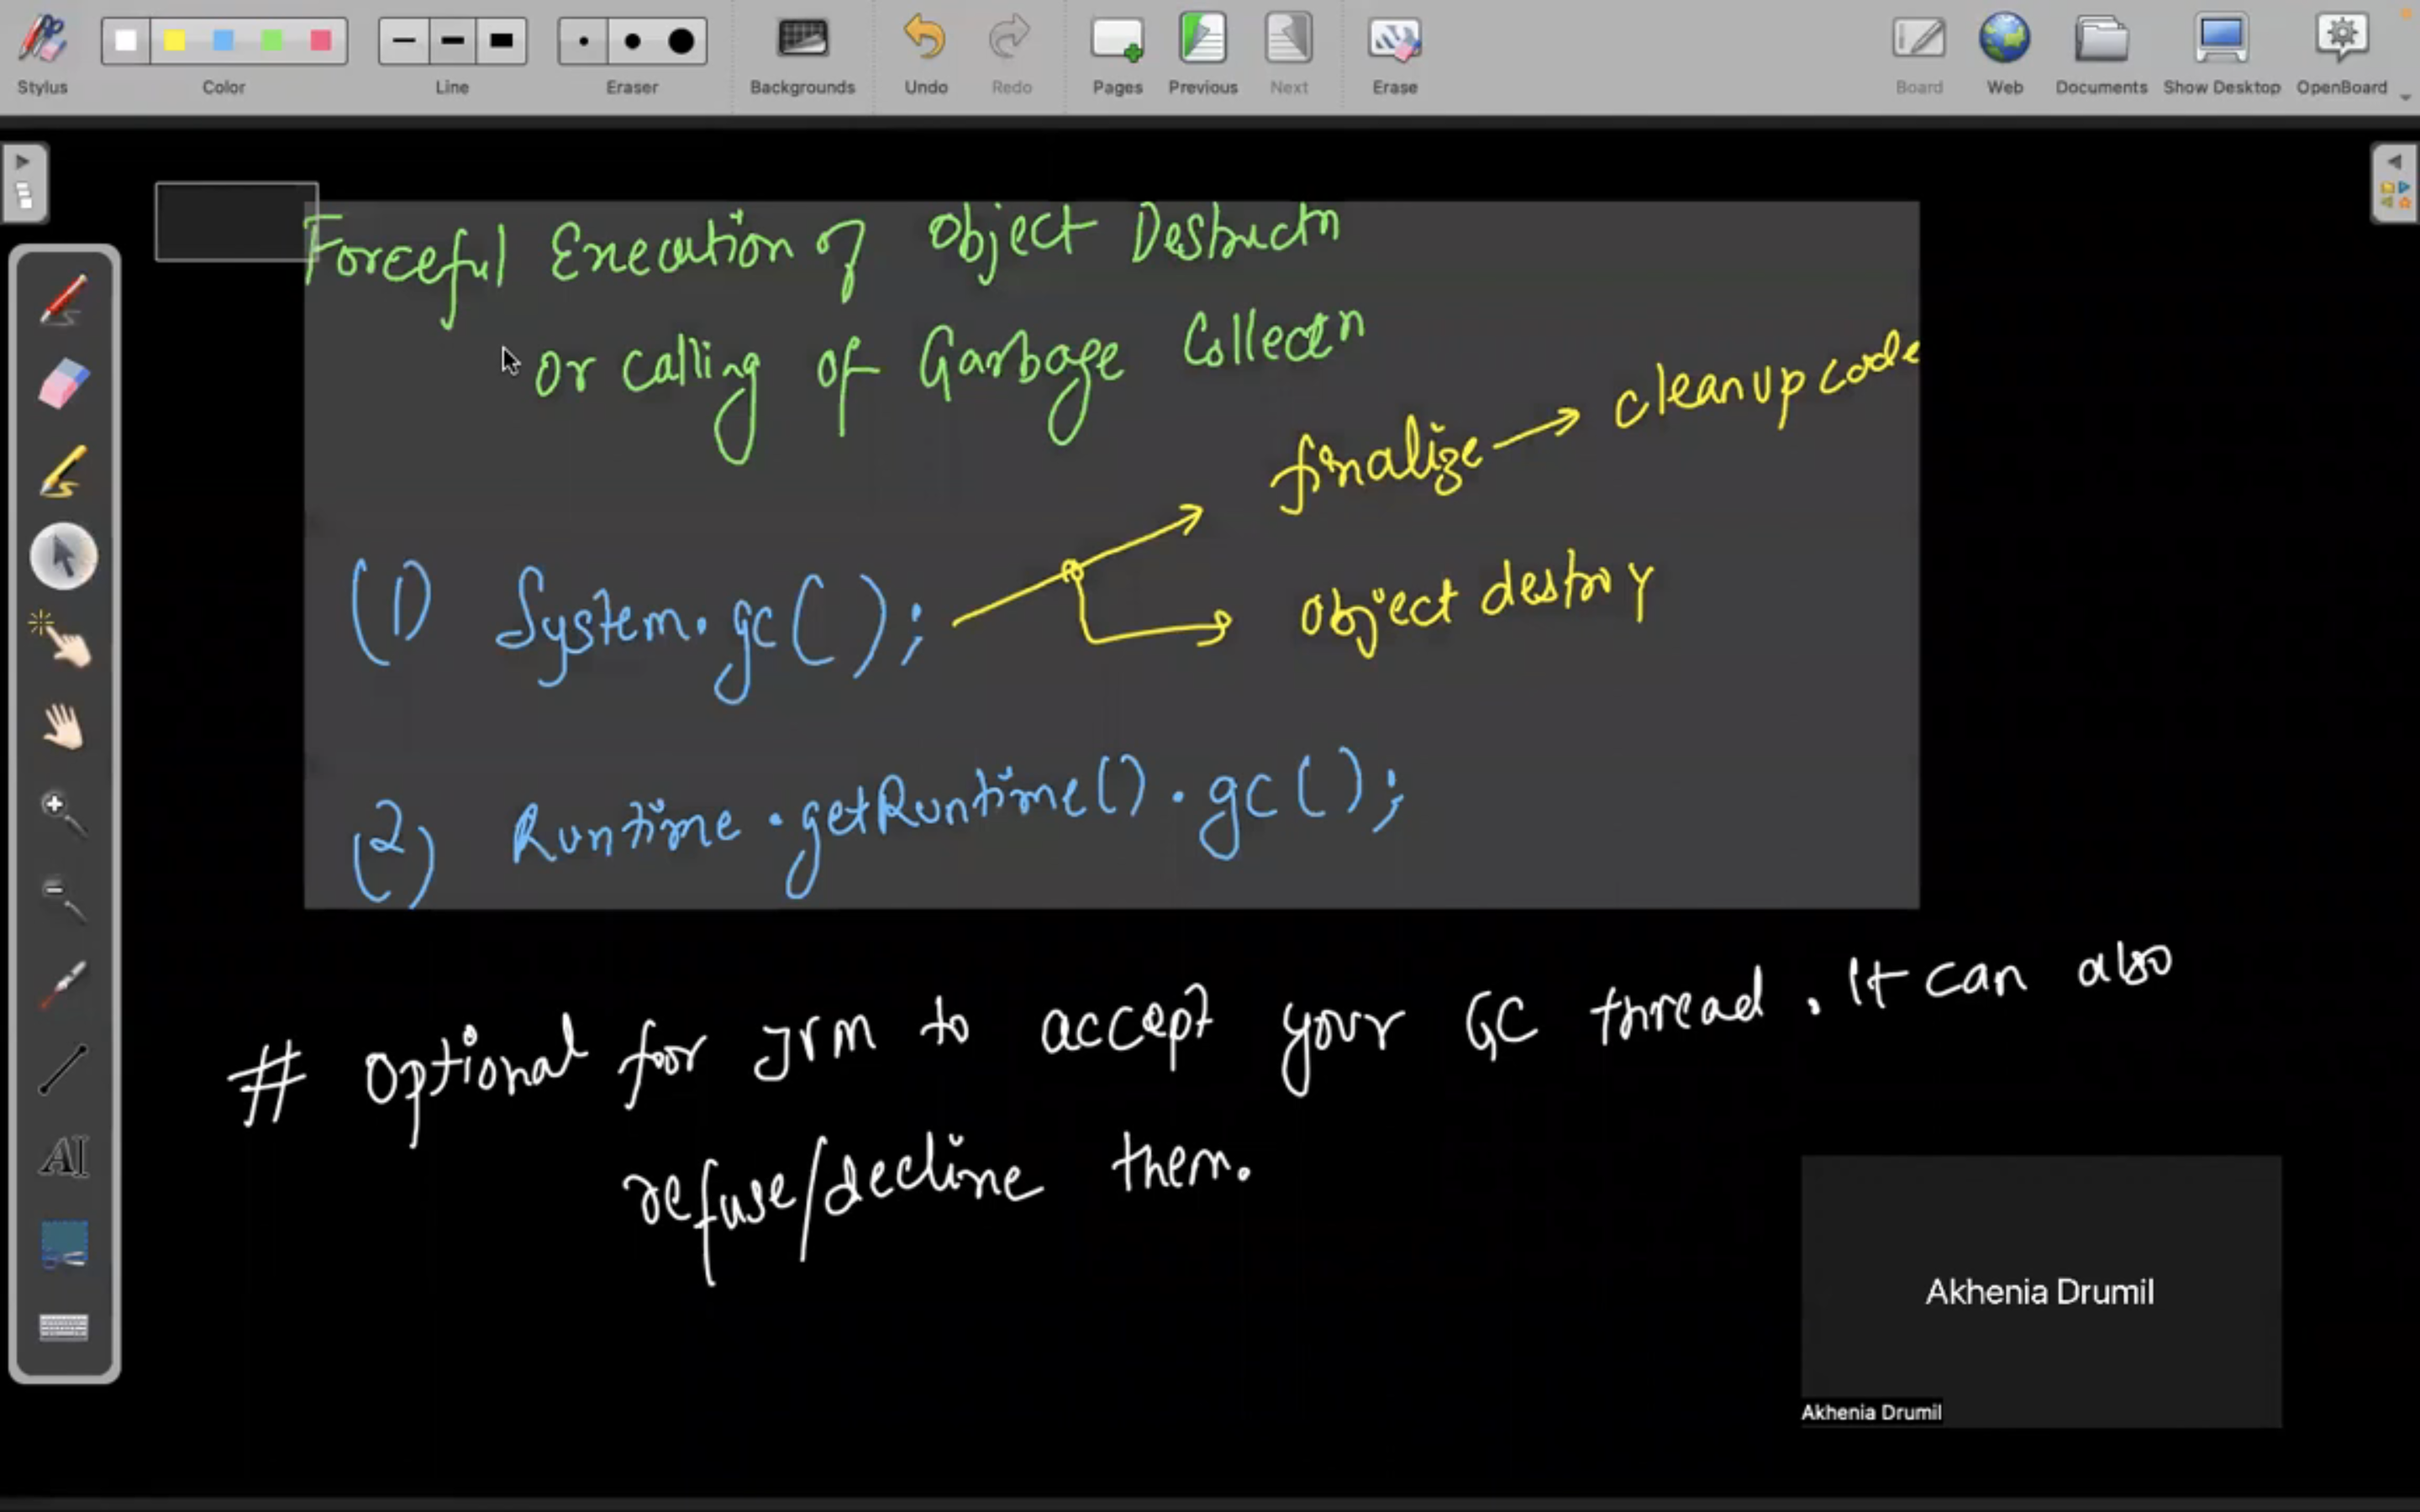 Stylus Color Line Eraser Backgrounds Undo Redo Pages Previous Next Erase Board Web Documents Show Desktop OpenBoard
Forceful Execution of Object Destructn
or calling of Garbage Collectn
finalize → cleanup code
(1) System.gc();
Object destroy
(2) Runtime.getRuntime().gc();
# Optional for JVM to accept your GC thread. It can also
refuse/decline them.
Akhenia Drumil
Akhenia Drumil